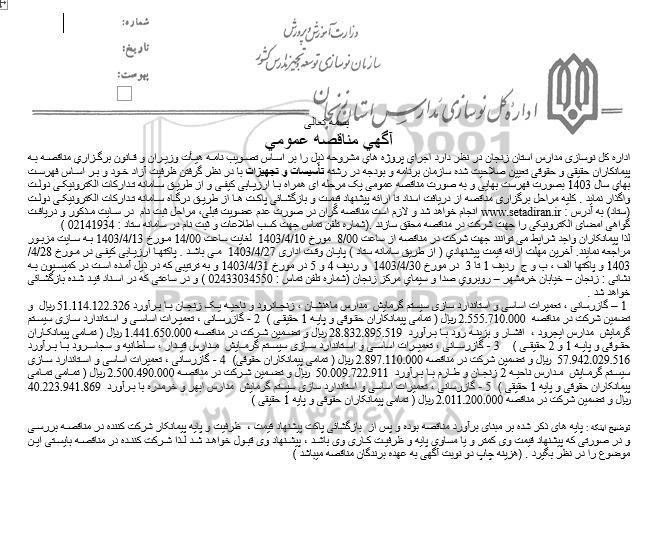 شماره:
تاریخ:
پیوست:
وزارت آموزش و پرورش
سازمان نوسازی توسعه و تجهیز مدارس کشور
اداره کل نوسازی مدارس استان زنجان
بسمه تعالی
آگهي مناقصه عمومي
اداره کل نوسازی مدارس استان زنجان در نظر دارد اجرای پروژه های مشروحه ذیل را بر اساس تصویب نامه هیأت وزیران و قانون برگزاری مناقصه به
پیمانکاران حقیقی و حقوقی تعیین صلاحیت شده سازمان برنامه و بودجه در رشته تأسیسات و تجهیزات با در نظر گرفتن ظرفیت آزاد خود و بر اساس فهرست
بهای سال 1403 بصورت فهرست بهایی و به صورت مناقصه عمومی یک مرحله ای همراه با ارزیابی کیفی و از طریق سامانه تدارکات الکترونیکی دولت
واگذار نماید . کلیه مراحل برگزاری مناقصه از دریافت اسناد تا ارائه پیشنهاد قیمت و بازگشائی پاکت ها از طریق درگاه سامانه تدارکات الکترونیکی دولت
(ستاد) به آدرس : www.setadiran.ir انجام خواهد شد و لازم است مناقصه گران در صورت عدم عضویت قبلی، مراحل ثبت نام در سایت مذکور و دریافت
گواهی امضای الکترونیکی را جهت شرکت در مناقصه محقق سازند. (شماره تلفن تماس جهت کسب اطلاعات و ثبت نام در سامانه ستاد : 02141934 )
لذا پیمانکاران واجد شرایط می توانند جهت شرکت در مناقصه از ساعت 8/00 مورخ 1403/4/10 لغایت ساعت 14/00 مورخ 1403/4/13 به سایت مزبور
مراجعه نمایند. آخرین مهلت ارائه قیمت پیشنهادی ( از طریق سامانه ستاد ) پایان وقت اداری 1403/4/27 می باشد . پاکتها ارزیابی کیفی در مورخ 4/28/
1403 و پاکتها الف ، ب و ج ردیف 1 تا 3 در مورخ 1403/4/30 و ردیف 4 و 5 در مورخ 1403/4/31 و به ترتیبی که در ذیل آمده است در کمیسیون به
نشانی : زنجان – خیابان خرمشهر – روبروی صدا و سیمای مرکز زنجان ( شماره تلفن تماس : 02433034550 ) و در ساعتی که در اسناد قید شده بازگشائی
خواهد شد .
1 – گازرسانی ، تعمیرات اساسی و استاندارد سازی سیستم گرمایش مدارس ماهنشان ، زنجانرود و ناحیه یک زنجان با برآورد 51.114.122.326 ریال و
تضمین شرکت در مناقصه 2.555.710.000 ریال ( تمامی پیمانکاران حقوقی و پایه 1 حقیقی ) 2 - گازرسانی ، تعمیرات اساسی و استاندارد سازی سیستم
گرمایش مدارس ایجرود ، افشار و بزینه رود با برآورد 28.832.895.519 ریال و تضمین شرکت در مناقصه 1.441.650.000 ریال ( تمامی پیمانکاران
حقوقی و پایه 1 و 2 حقیقی ) 3 - گازرسانی ، تعمیرات اساسی و استاندارد سازی سیستم گرمایش مدارس قیدار ، سلطانیه و سجاسرود با برآورد
57.942.029.516 ریال و تضمین شرکت در مناقصه 2.897.110.000 ریال ( تمامی پیمانکاران حقوقی) 4 - گازرسانی ، تعمیرات اساسی و استاندارد سازی
سیستم گرمایش مدارس ناحیه 2 زنجان و طارم با برآورد 50.009.722.911 ریال و تضمین شرکت در مناقصه 2.500.490.000 ریال ( تمامی تمامی
پیمانکاران حقوقی و پایه 1 حقیقی ) 5 - گازرسانی ، تعمیرات اساسی و استاندارد سازی سیستم گرمایش مدارس ابهر و خرمدره با برآورد 40.223.941.869
ریال و تضمین شرکت در مناقصه 2.011.200.000 ریال ( تمامی پیمانکاران حقوقی و پایه 1 حقیقی )
توضیح اینکه : پایه های ذکر شده بر مبنای برآورد مناقصه بوده و پس از بازگشائی پاکت پیشنهاد قیمت ، ظرفیت و پایه پیمانکار شرکت کننده در مناقصه بررسی
و در صورتی که پیشنهاد قیمت وی کمتر و یا مساوی پایه و ظرفیت کاری وی باشد ، پیشنهاد وی قبول خواهد شد لذا شرکت کننده در مناقصه بایستی این
موضوع را در نظر بگیرد . (هزینه چاپ دو نوبت آگهی به عهده برندگان مناقصه میباشد )